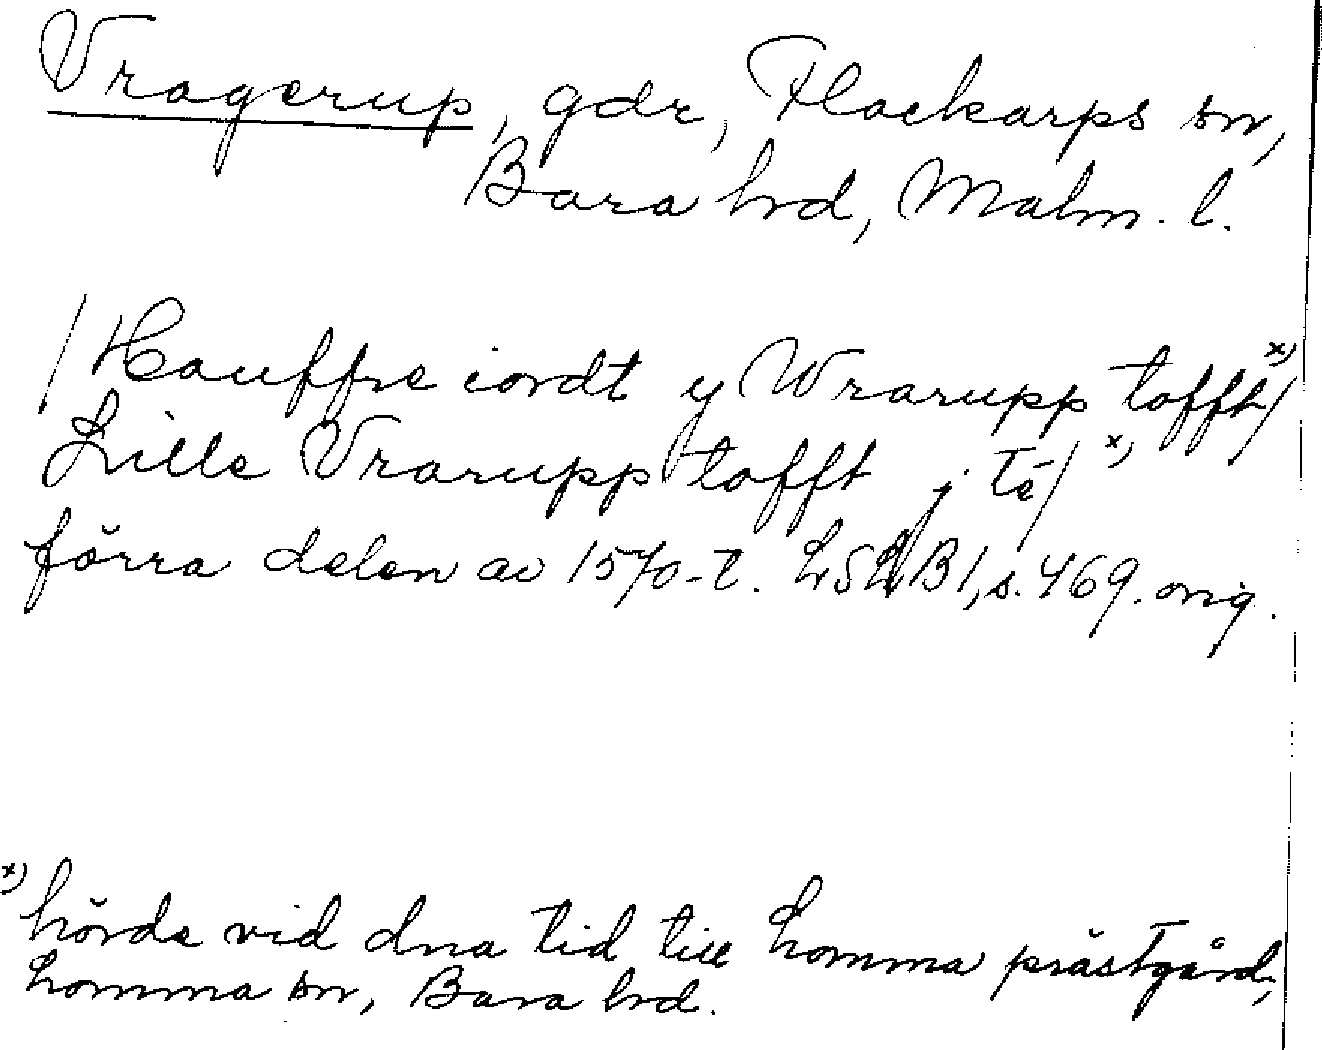 Vragerup, gdr, Flackarps sn,
Bara hrd, Malm. l.
/Hauffre iordt y Wrarupp tofft x)/
Lille Vrarupp tofft j Tē/ x)
förra delen av 1570-t. LSLB1, s. 469. orig.
x) hörde vid dna tid till Lomma prästgård,
Lomma sn, Bara hrd.